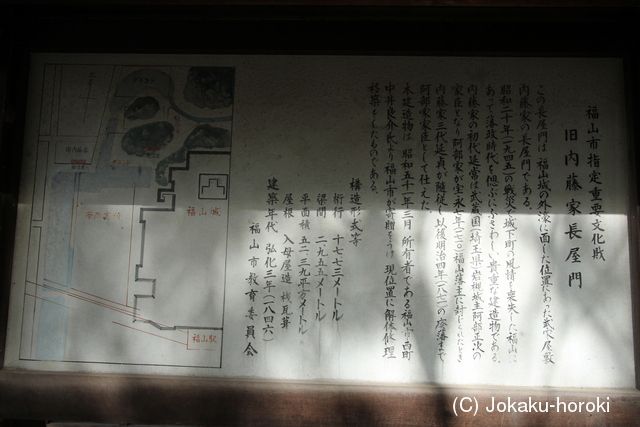 福山市指定重要文化財
旧内藤家長屋門
この長屋門は、福山城の外濠に面した位置にあった武家屋敷
内藤家の長屋門である。
昭和二十年(一九四五)の戦災で城下町の風情を喪失した福山に
あって藩政時代を偲ぶにふさわしい貴重な建造物である。
内藤家の初代延宗は武蔵国(埼玉県)岩槻城主阿部正次の
家臣となり阿部家が宝永七年(一七一〇)福山藩主に封ぜられたとき
内藤家三代延貞が随従し以後明治四年(一八七一)の廃藩まで
阿部家家臣として仕えた。
本建造物は、昭和五十一年三月所有者である福山市西町
中井臣外氏より福山市が寄贈をうけ現位置に解体修理
移築をしたものである。
構造形式等
桁行 十七・七三メートル
梁間 三・九五五メートル
平面積 五二・三九平方メートル
屋根 入母屋造 桟瓦葺
建築年代 弘化三年(一八四六)
福山市教育委員会
福山城
福山駅
(C) Jokaku-horoki